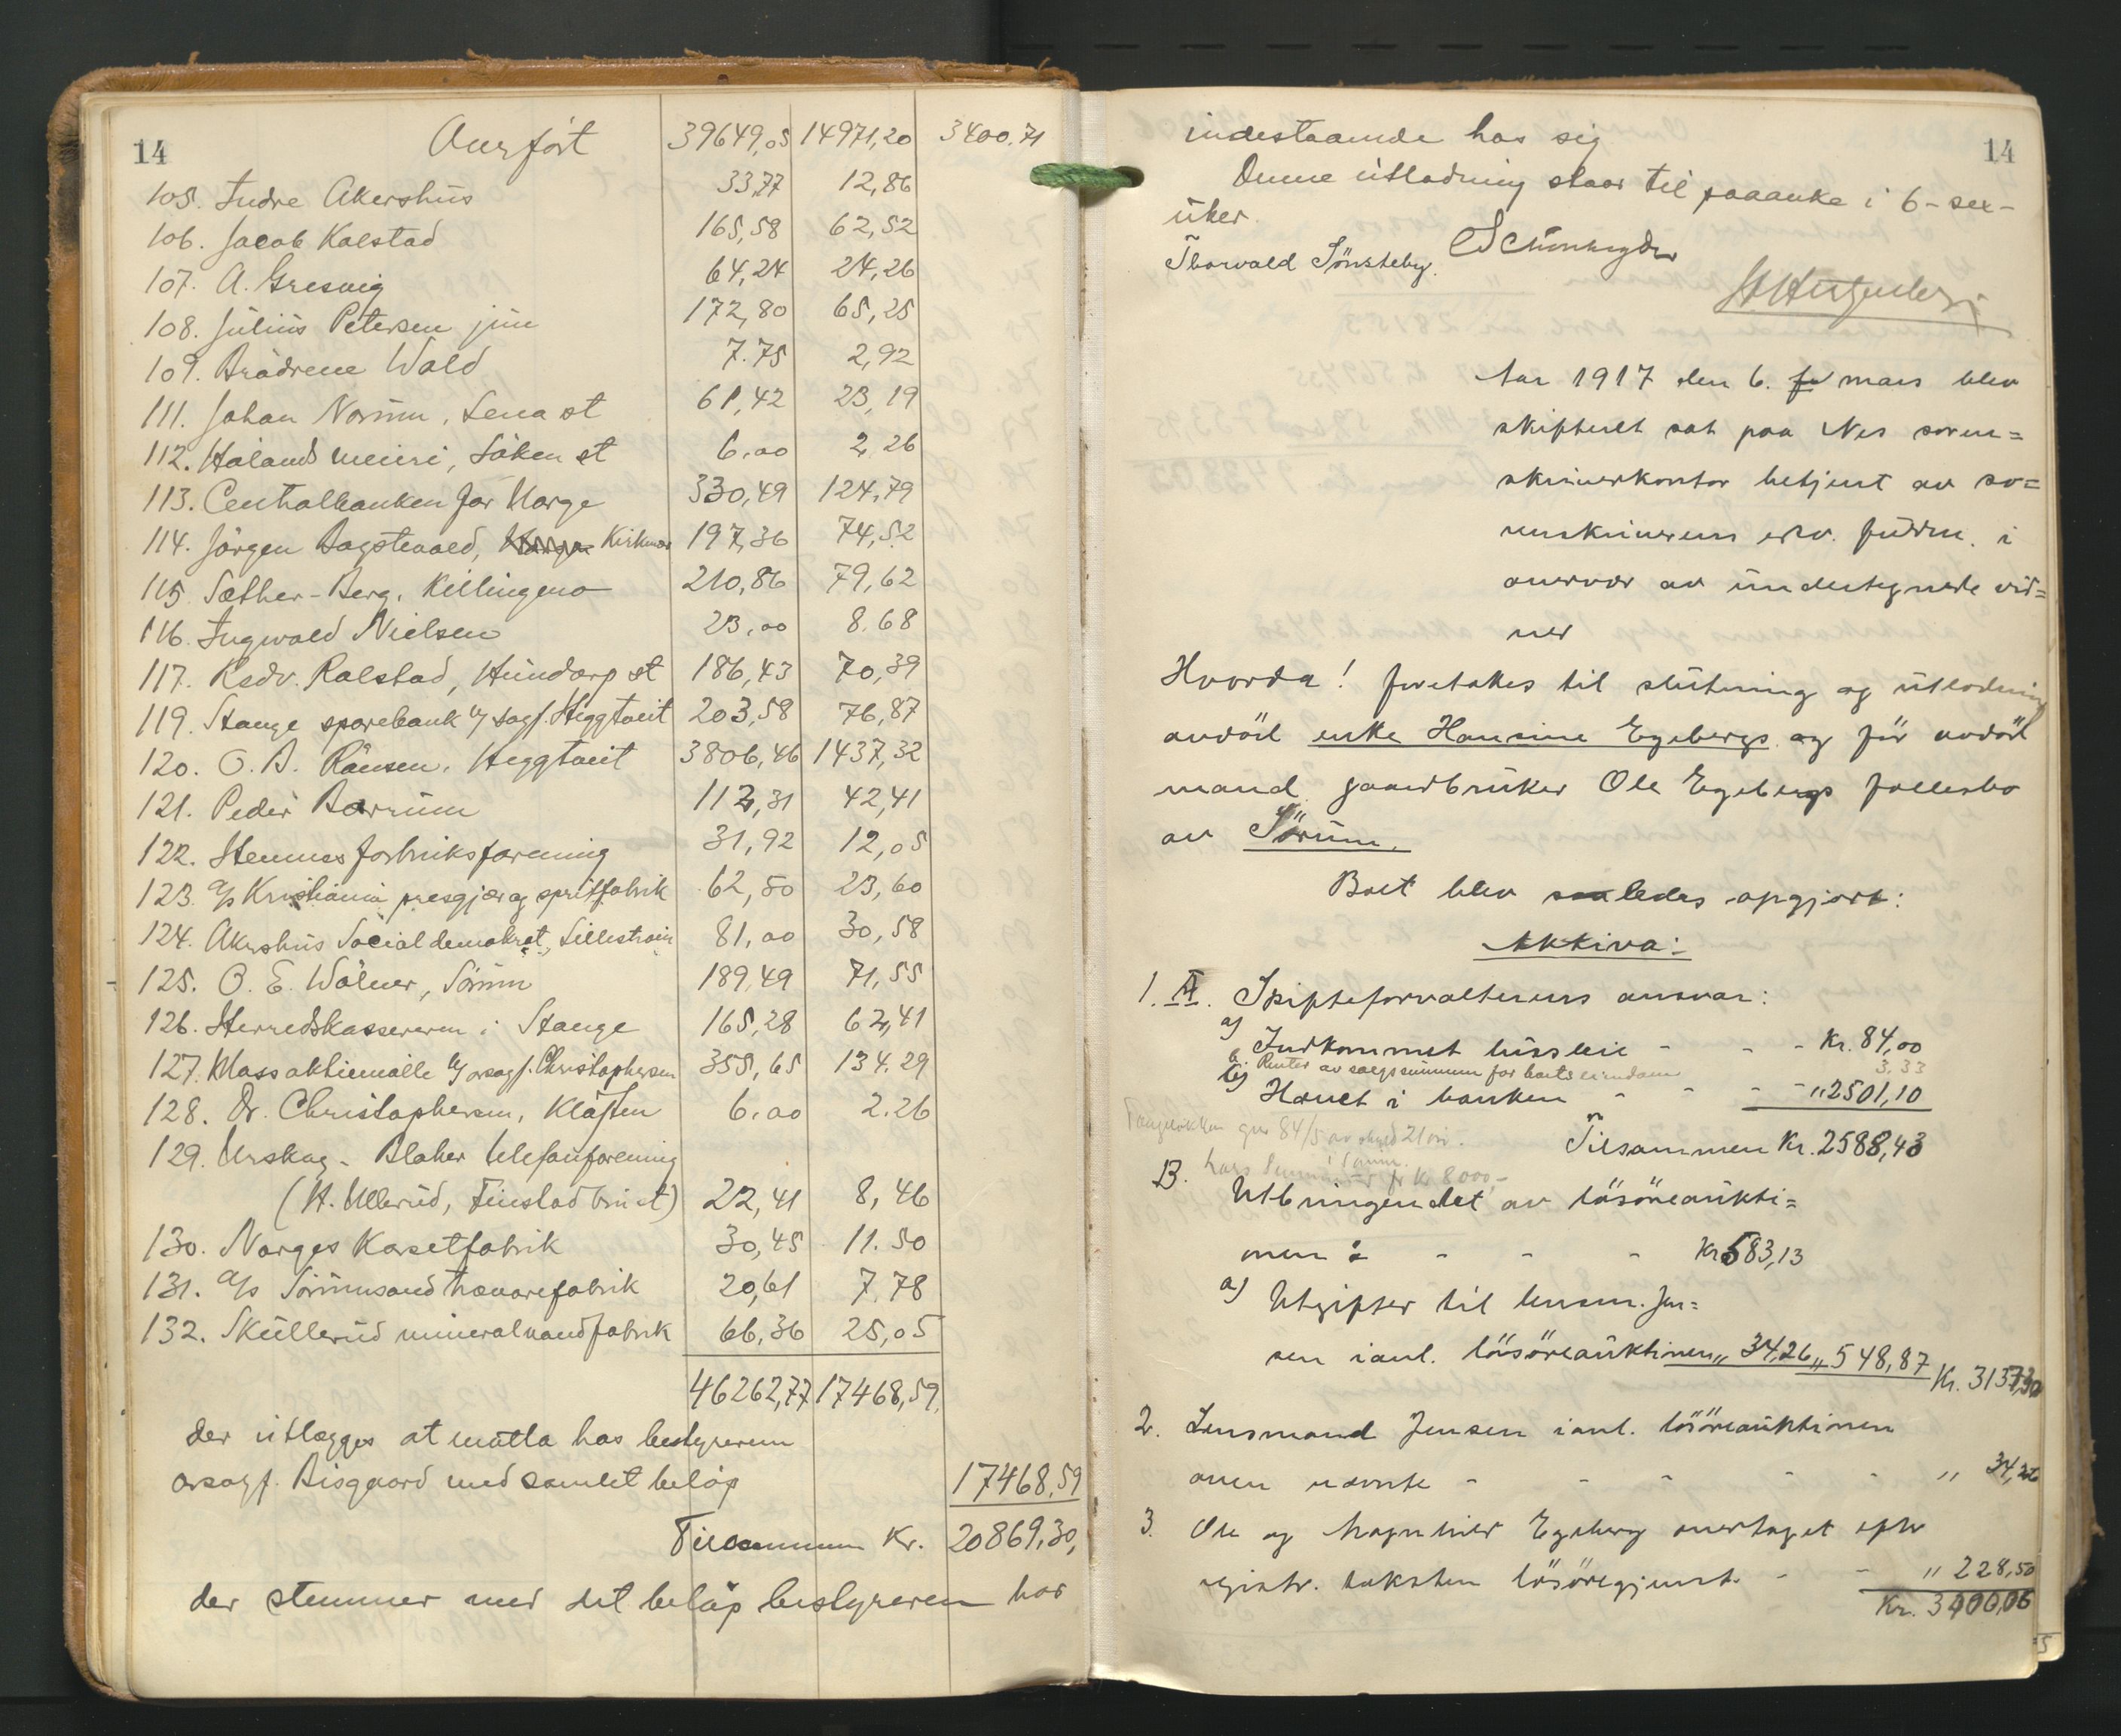 14
Overført 39649,05 14971,20 3400.71
105. Indre Akershus 33,77 12,86
106. Jacob Kolstad 165,58 62,52
107. A. Gresvig 64,24 24,26
108. Julius Petersen jun 172,80 65,25
109. Brødrene Wold 7.75 2,92
111. Johan Norum, Lena st 61,42 23,19
112. Hølands meieri, Løken st 6.00 2,26
113. Centralbanken for Norge 330,49 124,79
114. Jørgen Bogstevold, Kirkenær 197,36 74,52
115. Sæther-Berg, Killingmo 210,86 79,62
116. Ingwald Nielsen 23,00 8.68
117. Kedv. Ralstad, Hundorp st 186,43 70,39
119. Stange sparebank v/ sagf. Heggtveit 203,58 76,87
120. O. A. Rønsen, Heggtveit 3806,46 1437,32
121. Peder Borrum 112,31 42,41
122. Hemnes forbruksforening 31,92 12,05
123. A/s Kristiania presgjær og spritfabrik 62,50 23,60
124. Akershus Social demokrat, Lillestrøm 81,00 30,58
125. O. E. Wølner, Sørum 189,49 71,55
126. Herredskassereren i Stange 165,28 62,41
127. Moss aktiemølle v/ orsagf. Christophersen 355,65 134.29
128. Dr. Christophersen, Kløften 6.00 2.26
129. Urskog - Blaker telefonforening
(H. Ullerud, Finstadbru st) 22,41 8,46
130. Norges Korsetfabrik 30,45 11.50
131. A/s Sørumsand trævarefabrik 20,61 7.78
132. Skullerud mineralvandfabrik 66,36 25,05
46262,77 17468,59
der utlægges at motta hos bestyreren
orsagf. Bisgaard med samlet beløp 17468,59
Tilsammen Kr. 20869,30,
der stemmer med det beløp bestyreren har
14
indestaaende hos sig
Denne utlodning staar til paaanke i 6-sex-
uker.
Thorvald Sønsteby.
Aar 1917 den 6. mars blev
skifteret sat paa Nes soren=
skriverkontor betjent av so=
renskriverens edsv. fuldm. i
overvær av undertegnede vid=
ner
Hvorda! foretakes til slutning og utlodning
avdød enke Hansine Egebergs og før avdød
mand gaardbruker Ole Egebergs fællesbo
av Sørum.
Boet blev saaledes opgjort:
Aktiva:
1. A. Skifteforvalterens ansvar:
a) Indkommet husleie - - - Kr. 84,00
b Renter av salgssummen for boets eiendom 3,33
c) Hævet i banken - - - " 2501,10
Tilsammen Kr. 2588,43
B. Utbringendet av løsøreaukti=
onen - - - Kr 583,13
a) Utgifter til lensm. Jen=
sen i anl. løsøreauktionen " 34,26 " 548,87 Kr. 3137,30
2. Lensmand Jensen i anl. løsøreauktionen
oven nævnte - - - - - " 34,26
3. Ole og Magnhild Egeberg overtaget efter
registr. taksten løsøregjenst. - - " 228,50
Kr. 3400,06